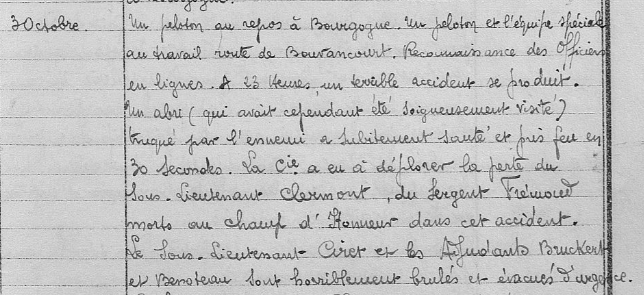 3 Octobre. Un peloton au repos à Bourgogne. Un peloton et l'équipe spéciale
au travail route de Bouvancourt. Reconnaissance des Officiers
en lignes. A 23 Heures, un terrible accident se produit.
Un abri (qui avait cependant été soigneusement visité)
truqué par l'ennemi a subitement sauté et pris feu en
30 secondes. La Cie a eu à déplorer la perte du
Sous-Lieutenant Clermont, du Sergent Frémond
morts au champ d'Honneur dans cet accident.
Le Sous-Lieutenant Ciret et les Adjudants Bruckert
et Benoteau sont horriblement brulés et évacués d'urgence.